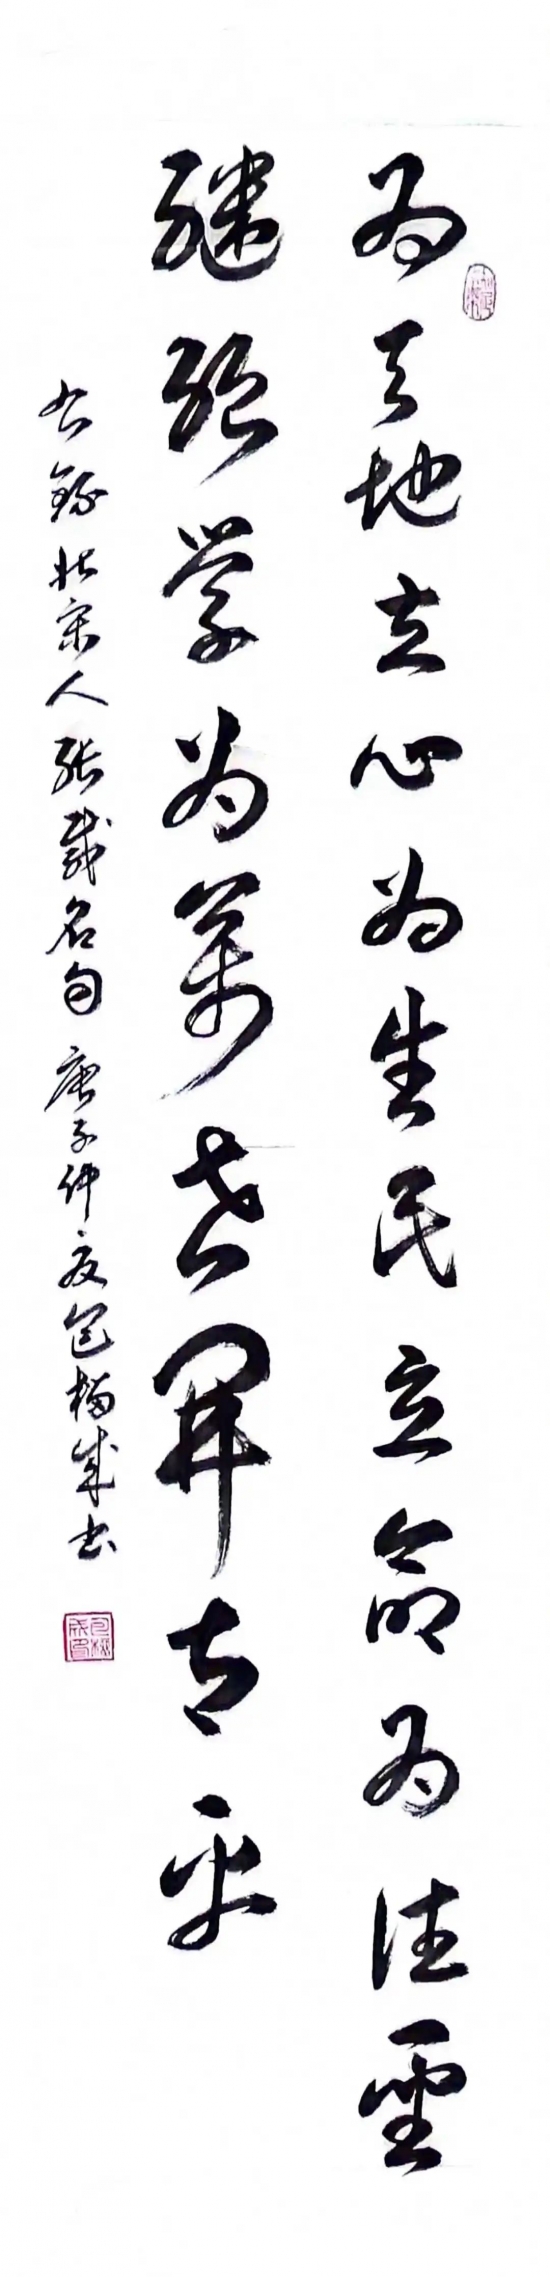 为天地立心为生民立命为往聖
继绝学为萬世開太平
右録北宋人张载名句庚子仲夏包梅成书